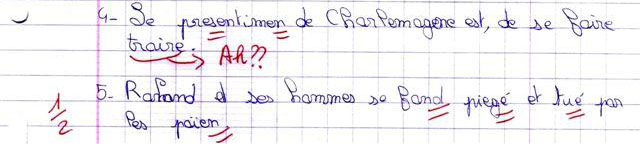 4- Le presentimen de Charlemagene est, de se faire
traire. Ah??
5- Roland et ses hommes se fond piegé et tué par
les paien
1/2